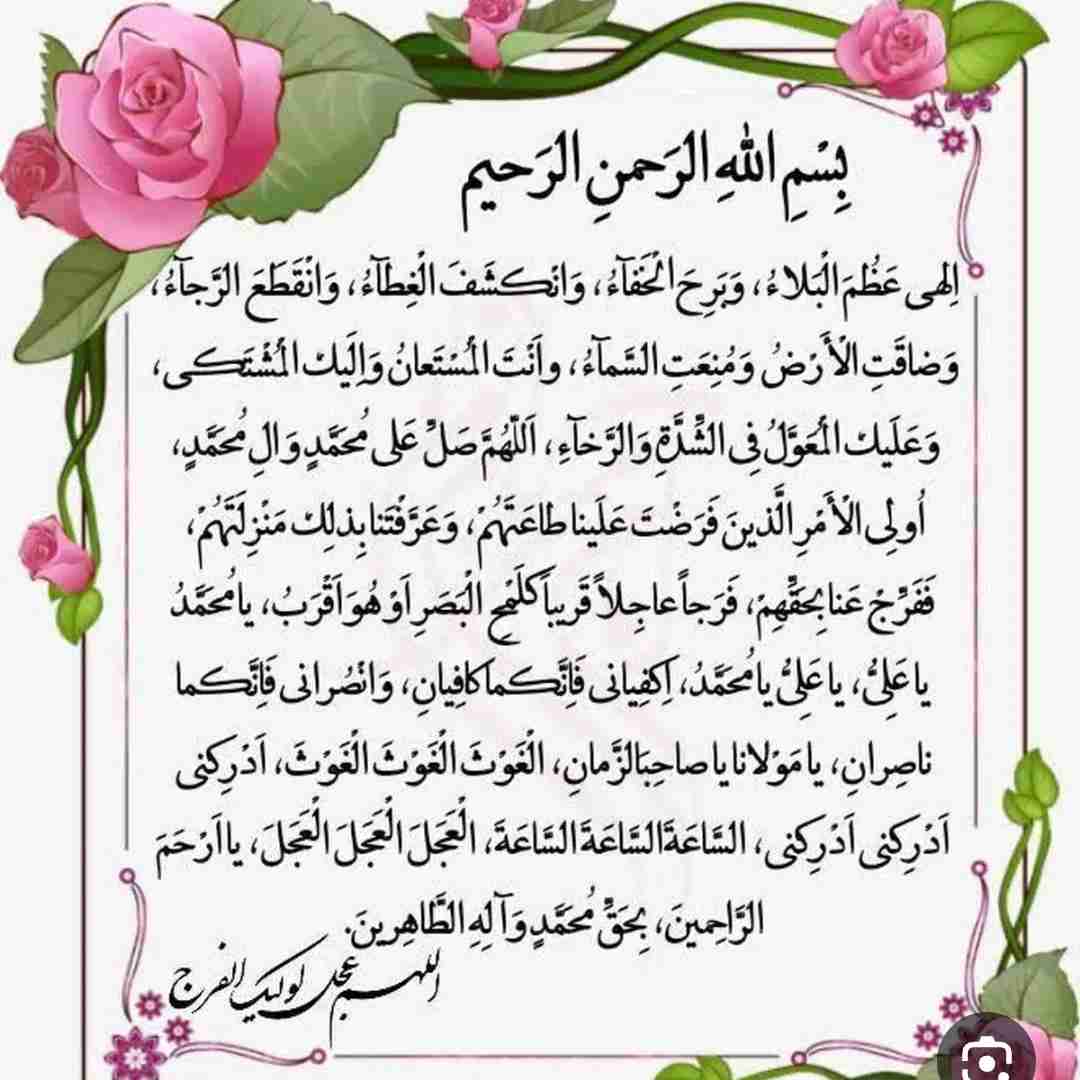 بِسْمِ اللهِ الرَحمنِ الرَحیم
اِلهی عَظُمَ الْبَلاءُ، وَبَرِحَ الْخَفآءُ، وَانْكَشَفَ الْغِطآءُ، وَانْقَطَعَ الرَّجآءُ،
وَضاقَتِ الْأَرْضُ وَمُنِعَتِ السَّمآءُ، واَنْتَ الْمُسْتَعانُ وَاِلَيكَ الْمُشْتَكى،
وَعَلَيكَ الْمُعَوَّلُ فِى الشِّدَّةِ وَالرَّخآءِ، اَللّهُمَّ صَلِّ عَلى مُحَمَّدٍ وَ الِ مُحَمَّدٍ،
اُولِى الْأَمْرِ الَّذينَ فَرَضْتَ عَلَينا طاعَتَهُمْ، وَعَرَّفْتَنا بِذلِكَ مَنْزِلَتَهُمْ،
فَفَرِّجْ عَنا بِحَقِّهِمْ، فَرَجاً عاجِلاً قَريباً كَلَمْحِ الْبَصَرِ اَوْ هُوَ اَقْرَبُ، يا مُحَمَّدُ
يا عَلِىُّ، يا عَلِىُّ يا مُحَمَّدُ، اِكْفِيانى فَاِنَّكُما كافِيانِ، وَانْصُرانى فَاِنَّكُما
ناصِرانِ، يا مَوْلانا يا صاحِبَ الزَّمانِ، الْغَوْثَ الْغَوْثَ الْغَوْثَ، اَدْرِكْنى
اَدْرِكْنى اَدْرِكْنى، السَّاعَةَ السَّاعَةَ السَّاعَةَ، الْعَجَلَ الْعَجَلَ الْعَجَلَ، يا اَرْحَمَ
الرَّاحِمينَ، بِحَقِّ مُحَمَّدٍ وَ آلِهِ الطَّاهِرينَ.
اللهم عجل لولیک الفرج